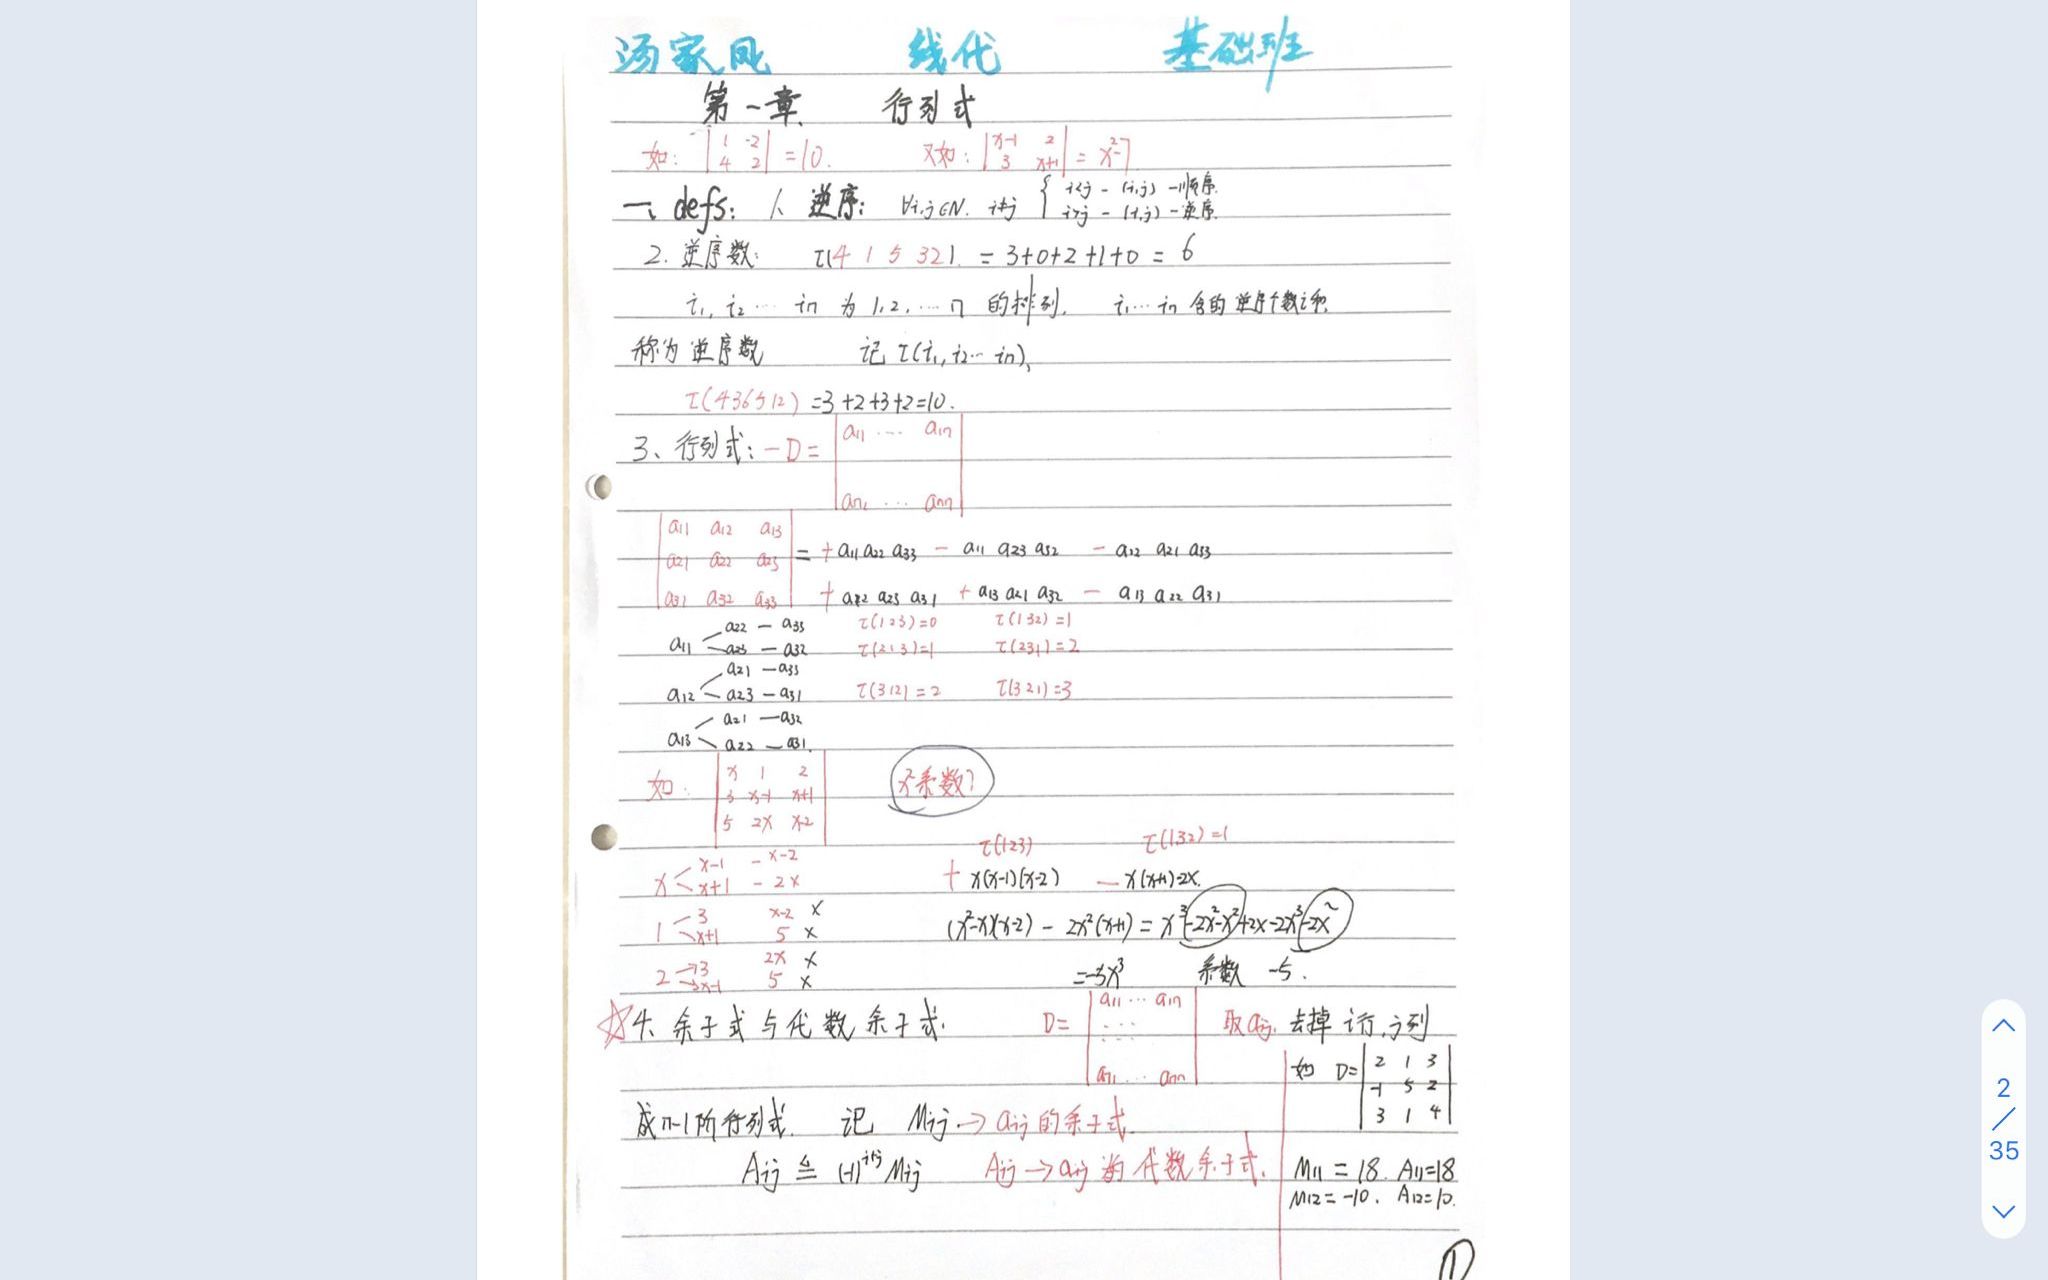 汤家凤 线代 基础班
第一章 行列式
如: |1 -2; 4 2| =10. 又如: |x-1 2; 3 x+1| = x²-7
一、defs: 1. 逆序: ∀i,j∈N. i≠j { i<j - (i,j) - 顺序.
i>j - (i,j) - 逆序.
2. 逆序数: τ(4 1 5 3 2). = 3+0+2+1+0 = 6
i₁, i₂ ··· in 为 1,2, ··· n 的排列. i₁ ··· in 含的逆序个数之和
称为逆序数 记 τ(i₁, i₂ ··· in),
τ(436512) =3+2+3+2=10.
3、行列式: — D = |a11 ··· a1n
an1 ··· ann|
|a11 a12 a13
a21 a22 a23 = + a11 a22 a33 - a11 a23 a32 - a12 a21 a33
a31 a32 a33| + a12 a23 a31 + a13 a21 a32 - a13 a22 a31
a22 — a33 τ(123)=0 τ(132)=1
a11 a23 — a32 τ(213)=1 τ(231)=2
a21 — a33
a12 a23 — a31 τ(312)=2 τ(321)=3
a21 — a32
a13 a22 — a31
如: |x 1 2
3 x-1 x+1 x²系数?
5 2x x-2|
τ(123) τ(132)=1
x-1 - x-2
x x+1 - 2x + x(x-1)(x-2) — x(x+1)·2x.
3 x-2 ×
1 x+1 5 × (x²-x)(x-2) - 2x²(x+1) = x³-2x²-x²+2x-2x³-2x²
3 2x ×
2 x-1 5 × =-5x³ 系数 -5.
☆4、余子式与代数余子式. D= |a11 ··· a1n
··· 取aij. 去掉 i行, j列
an1 ··· ann|
如 D= |2 1 3
-1 5 2
3 1 4|
成n-1阶行列式. 记 Mij → aij 的余子式.
Aij ≜ (-1)^{i+j} Mij Aij → aij 的代数余子式. M11 = 18. A11=18
M12= -10. A12=10.
①
2
/
35